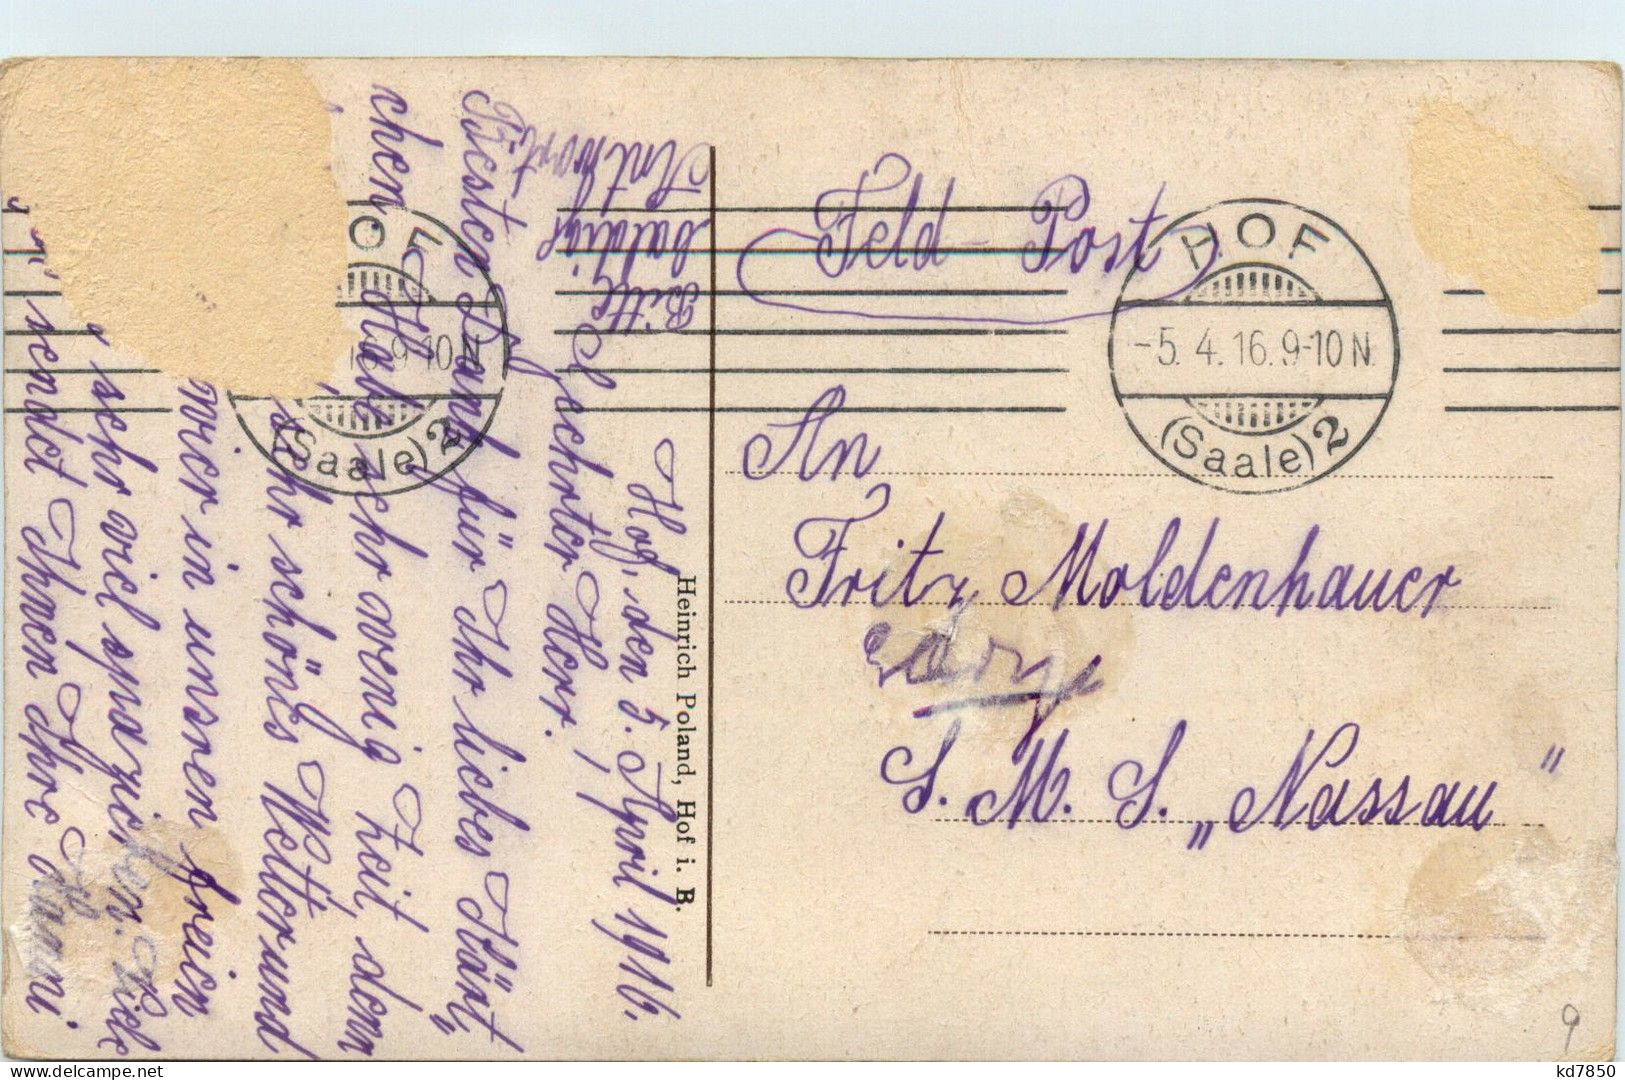 Feld-Post
HOF
-5. 4. 16. 9-10 N
(Saale) 2
HOF
16. 9-10 N
(Saale) 2
An
Fritz Moldenhauer
S. M. S. „Nassau"
Heinrich Poland, Hof i. B.
Bitte
baldige
Antwort
Hof, den 5. April 1916.
Geehrter Herr!
Besten Dank für Ihr liebes Kärt„
chen. Habe sehr wenig Zeit, denn
sehr schönes Wetter und
wir in unsren freien
sehr viel spazieren. Viele
sendet Ihnen Ihre Hanni
9
kd7850